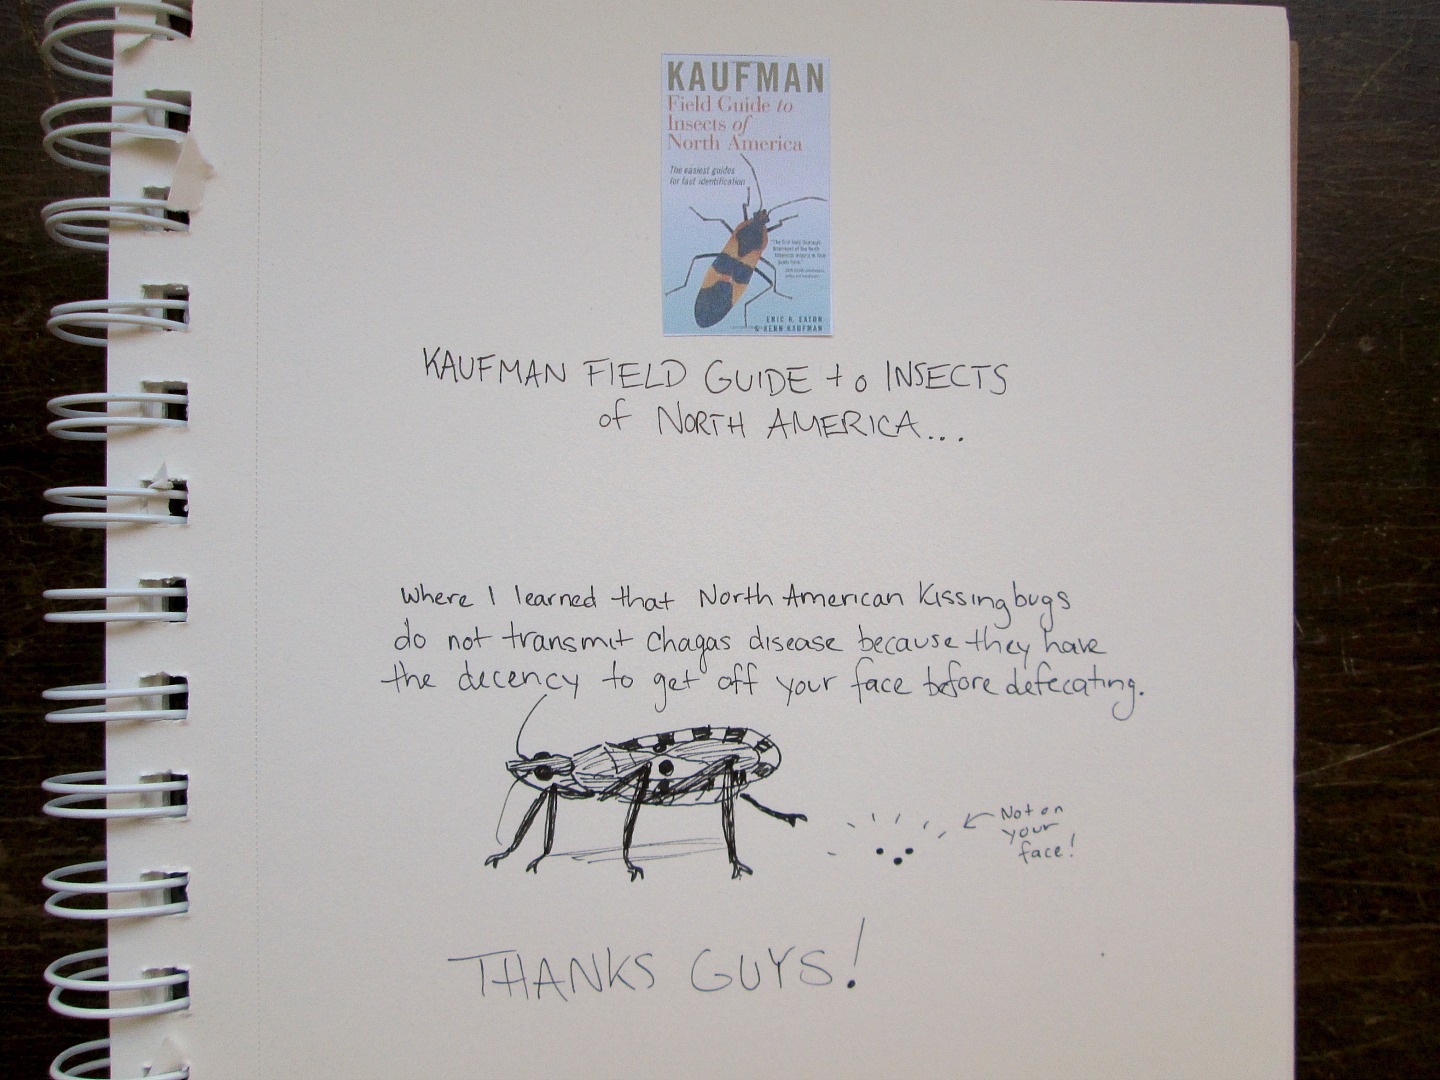 KAUFMAN
Field Guide to
Insects of
North America
The easiest guides
for fast identification
ERIC R. EATON
& KENN KAUFMAN
KAUFMAN FIELD GUIDE to INSECTS
of NORTH AMERICA...
Where I learned that North American Kissing bugs
do not transmit Chagas disease because they have
the decency to get off your face before defecating.
Not on
your
face!
THANKS GUYS!